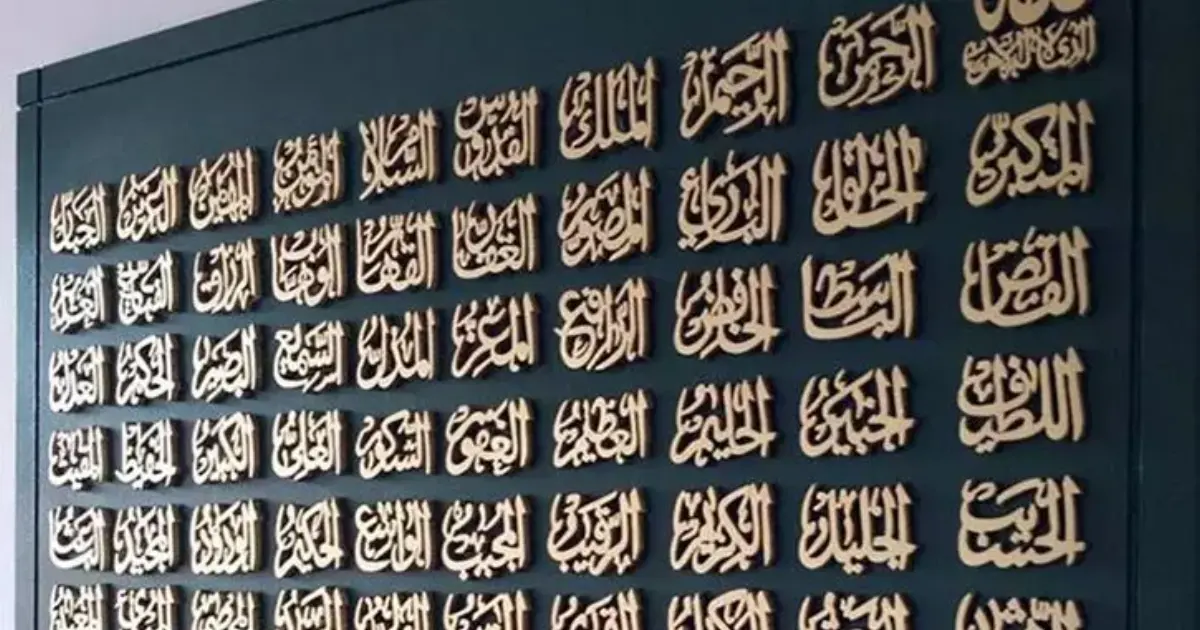 الذي لا إله إلا هو
الرحمن الرحيم الملك القدوس السلام المؤمن المهيمن العزيز الجبار
المتكبر الخالق البارئ المصور الغفار القهار الوهاب الرزاق الفتاح العليم
القابض الباسط الخافض الرافع المعز المذل السميع البصير الحكم العدل
اللطيف الخبير الحليم العظيم الغفور الشكور العلي الكبير الحفيظ المقيت
الحسيب الجليل الكريم الرقيب المجيب الواسع الحكيم الودود المجيد الباعث